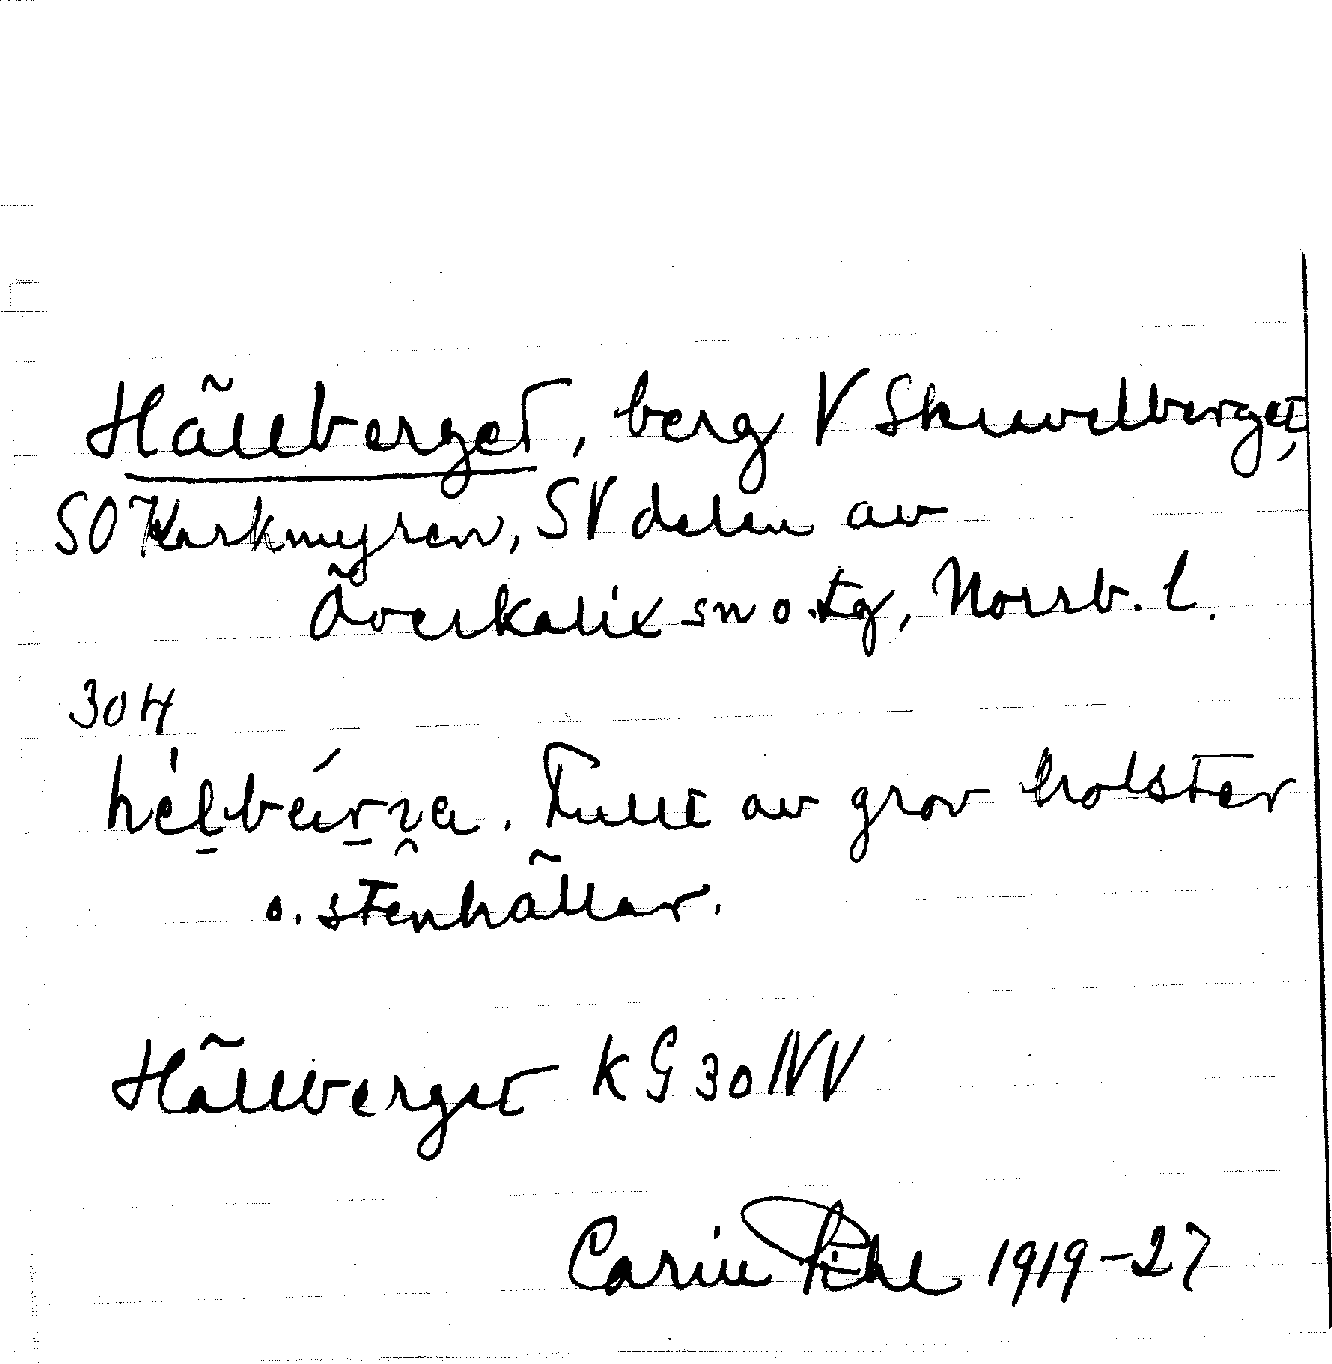 Hällberget, berg V Skuvelberget,
SO Karkmyren, SV delen av
Överkalix sn o. tg, Norrb. l.
304
Fullt av grov holster
o. stenhällar.
Hällberget KG30NV
Carin Pihl 1919-27